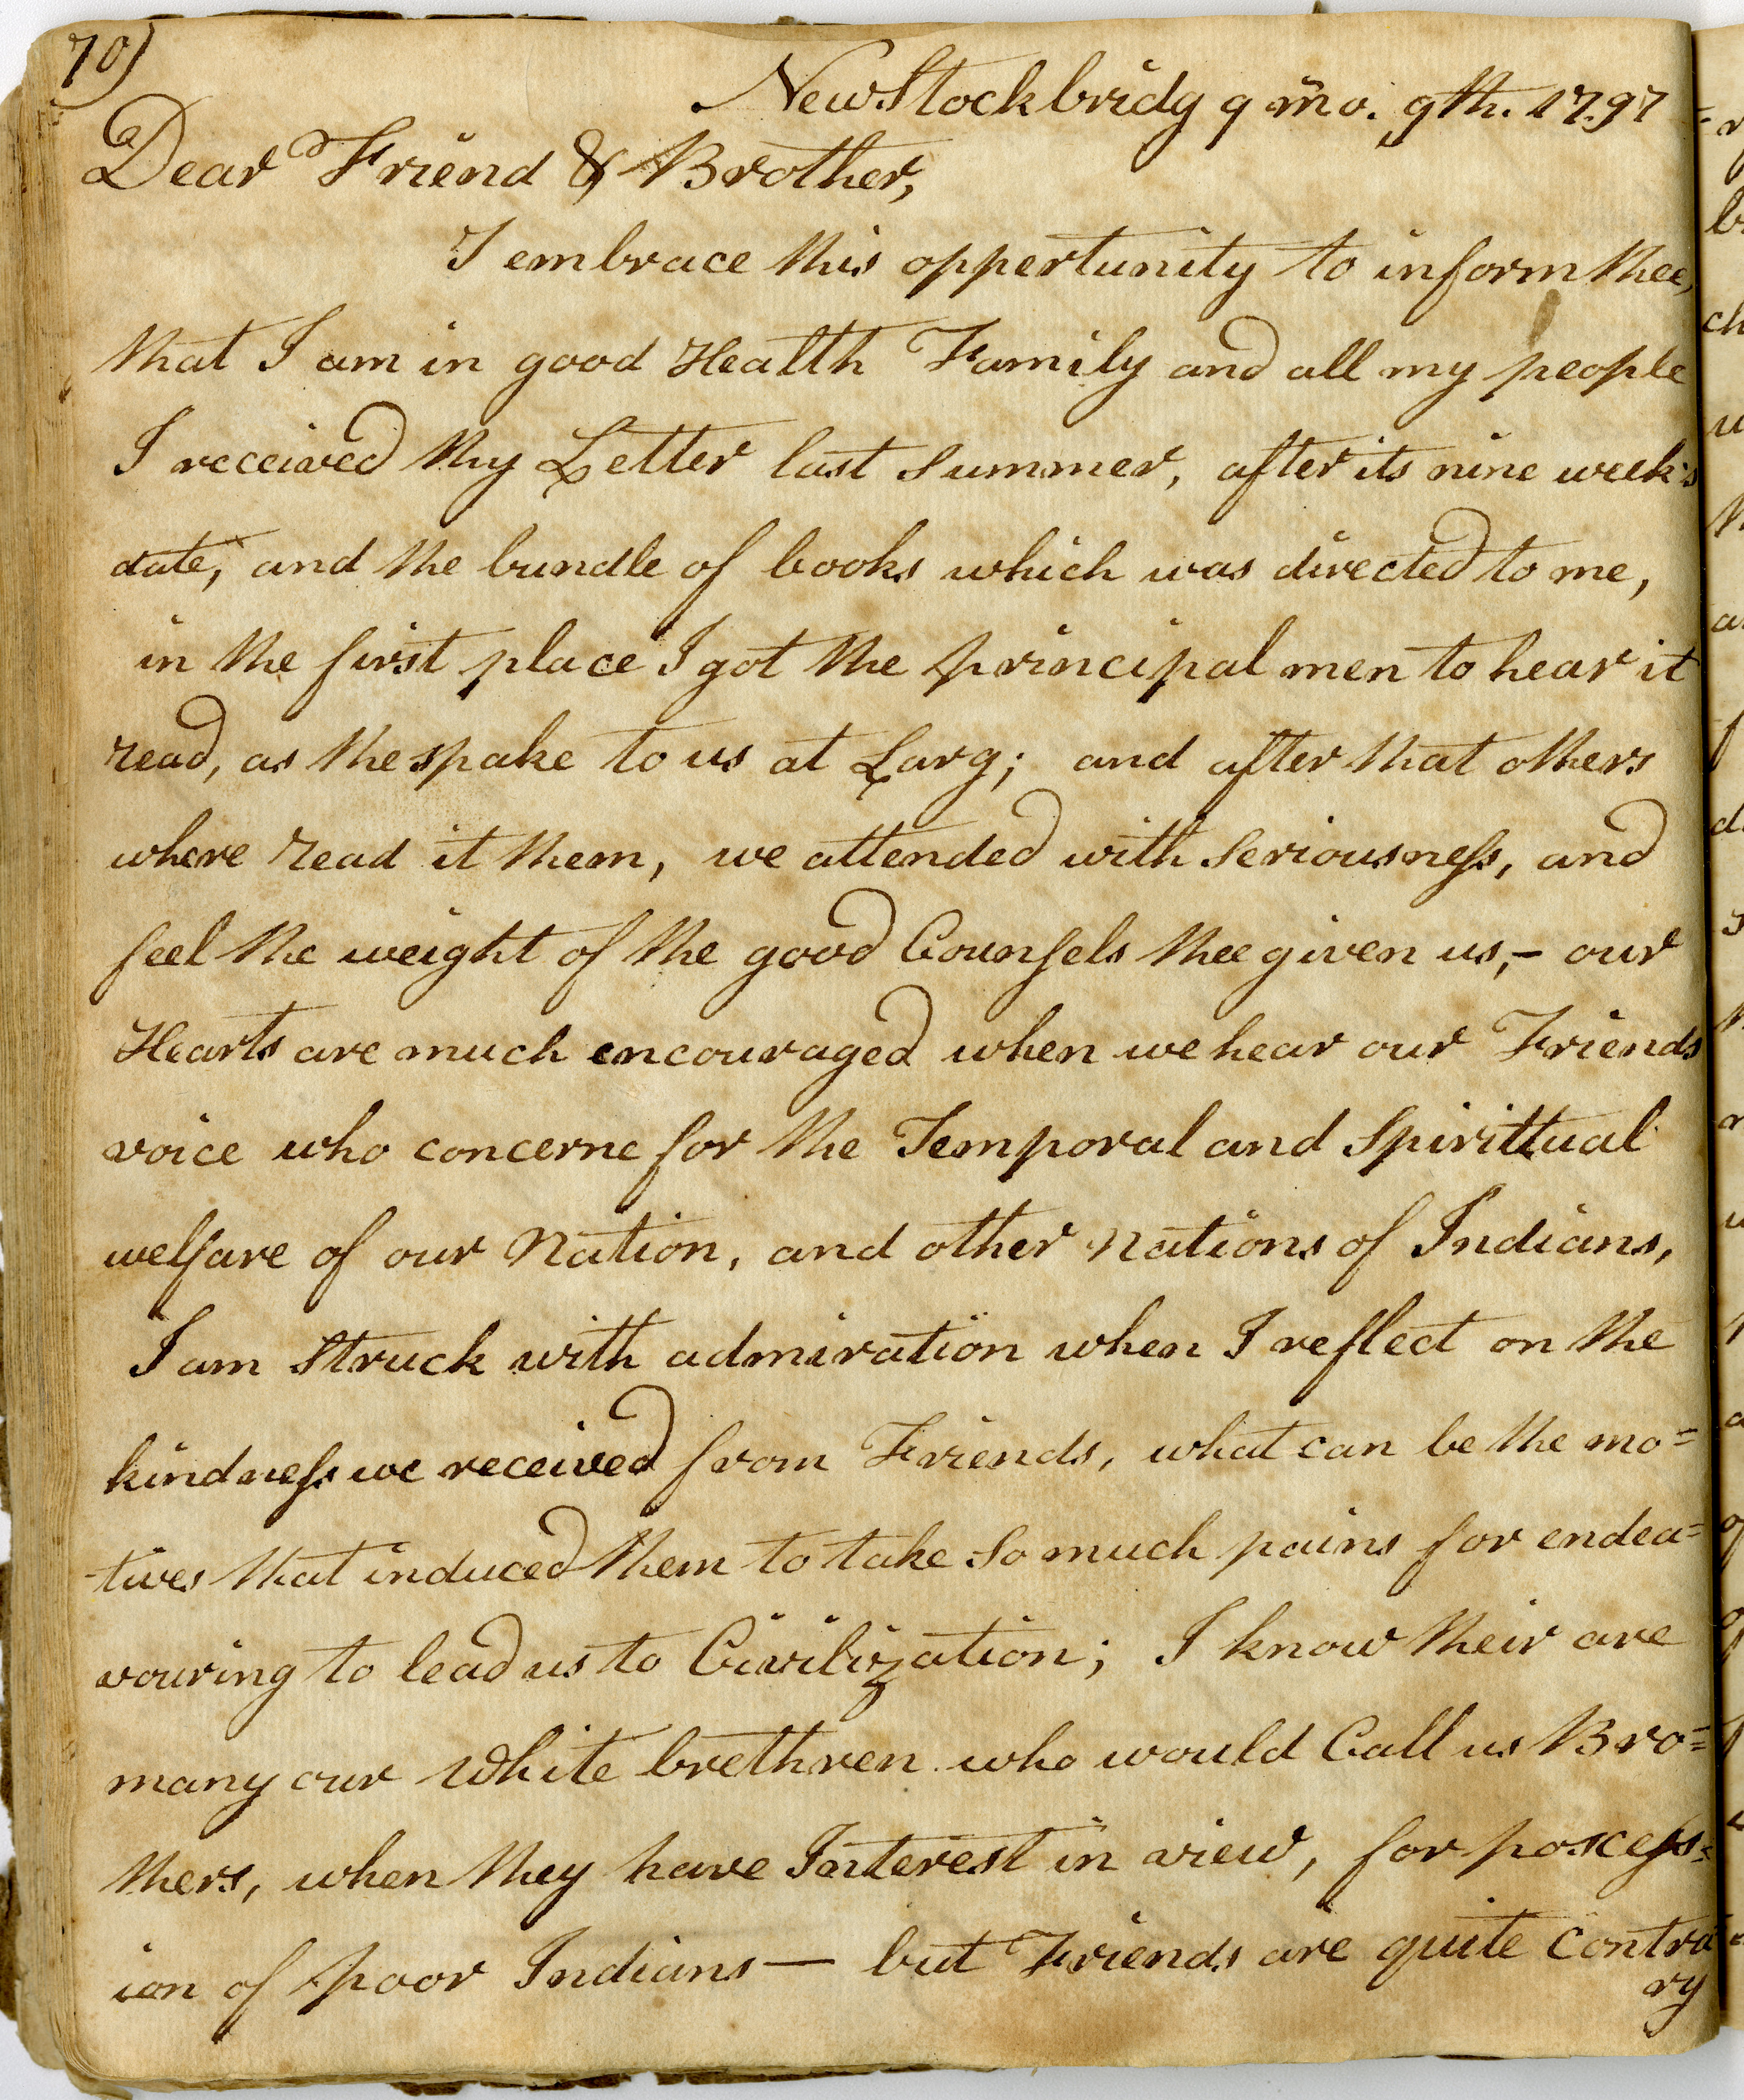 70)
New Stockbridg 9 mo. 9th. 1797
Dear Friend & Brother,
I embrace this oppertunity to inform thee,
that I am in good Health Family and all my people
I received thy Letter last Summer, after its nine week's
date, and the bundle of books which was directed to me,
in the first place I got the principal men to hear it
read, as the spake to us at Larg; and after that others
where read it them, we attended with Seriousness, and
feel the weight of the good Counsels thee given us,- our
Hearts are much encouraged when we hear our Friends
voice who concerne for the Temporal and Spirittual
welfare of our Nation, and other Nations of Indians,
I am Struck with admiration when I reflect on the
kindness we received from Friends, what can be the mo=
tives that induced them to take So much pains for endea=
vouring to lead us to Civilization; I know their are
many our White brethren who would Call us Bro=
thers, when they have Interest in view, for poscess=
ion of poor Indians — but Friends are quite Contra
ry